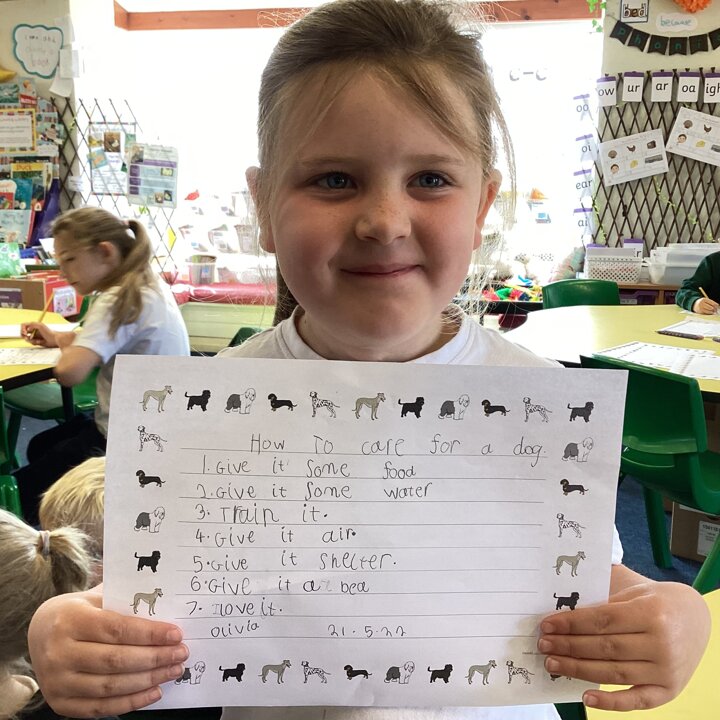 because
ow ur ar oa igh
oo
oi
ear
How To care for a dog.
1. Give it some food
2. Give it some water
3. Train it.
4. Give it air.
5. Give it shelter.
6. Give it a bed
7. Love it.
Olivia 21.5.22